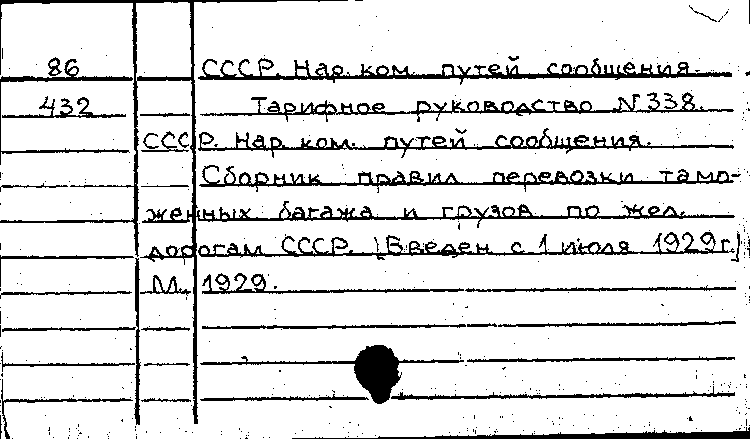 86 СССР. Нар. ком. путей сообщения.
432 Тарифное руководство N 338.
СССР. Нар. ком. путей сообщения.
Сборник правил перевозки тамо-
женных багажа и грузов по жел.
дорогам СССР. [Введен с 1 июля 1929 г.]
М., 1929.